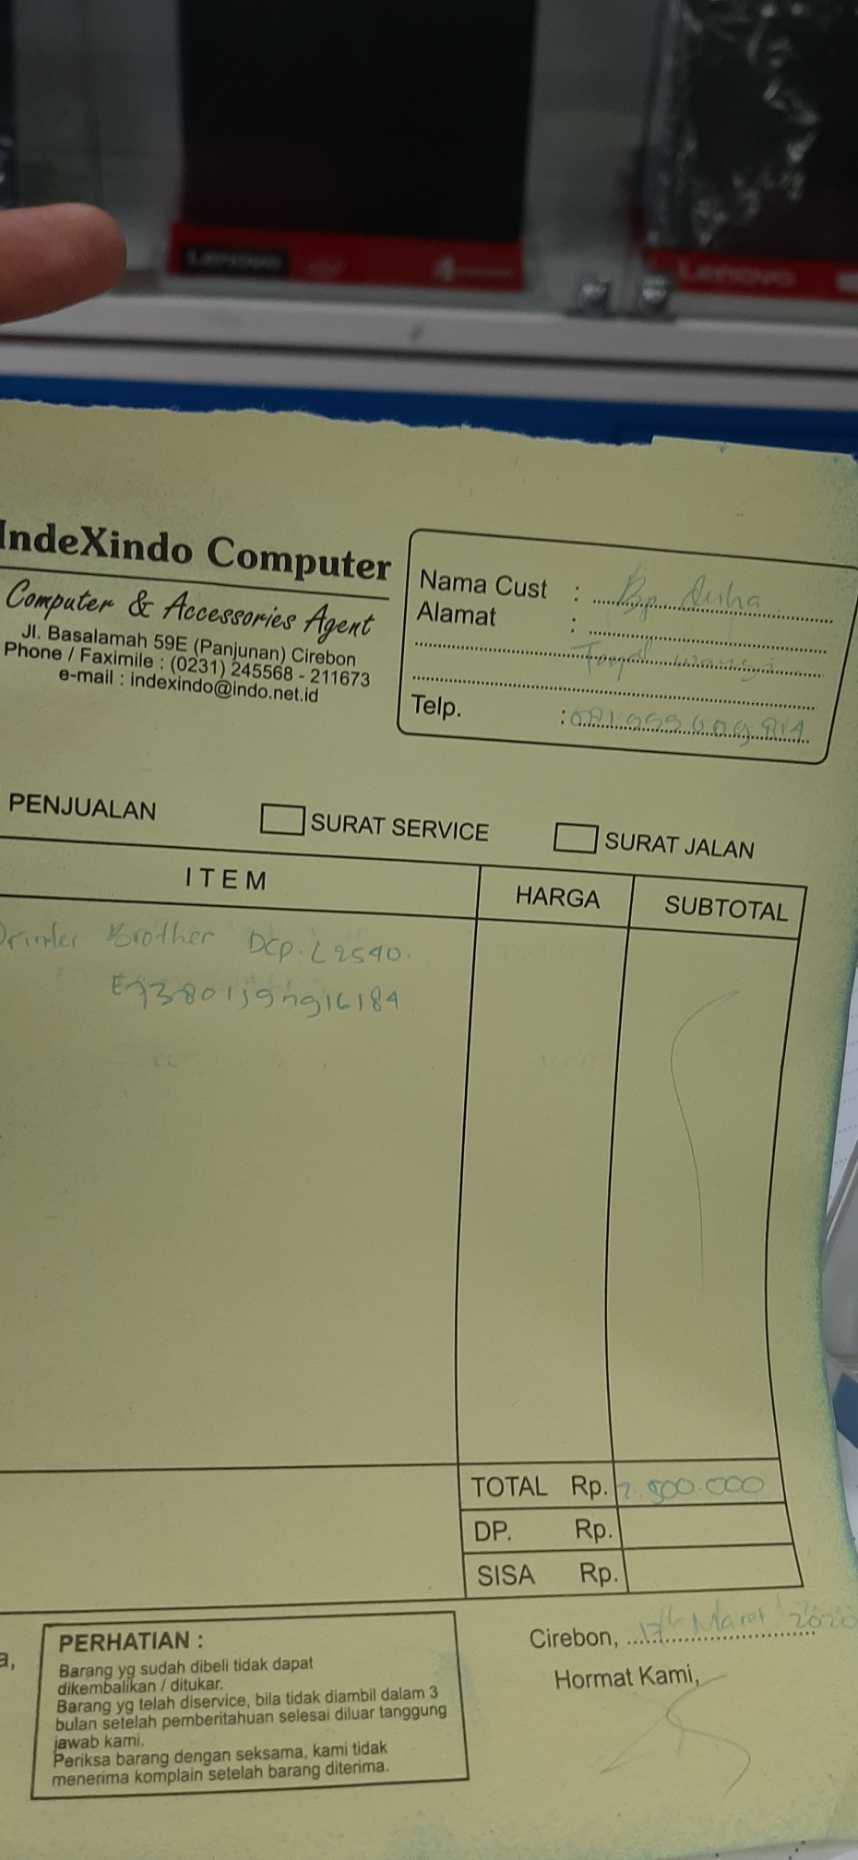 Lenovo
Lenovo
IndeXindo Computer
Computer & Accessories Agent
Jl. Basalamah 59E (Panjunan) Cirebon
Phone / Faximile : (0231) 245568 - 211673
e-mail : indexindo@indo.net.id
Nama Cust : Bp
Alamat :
Telp. :
PENJUALAN SURAT SERVICE SURAT JALAN
ITEM HARGA SUBTOTAL
Printer Brother DCP.L2540.
TOTAL Rp. 2.500.000
DP. Rp.
SISA Rp.
Cirebon, 17th Maret 2020
Hormat Kami,
a,
PERHATIAN :
Barang yg sudah dibeli tidak dapat
dikembalikan / ditukar.
Barang yg telah diservice, bila tidak diambil dalam 3
bulan setelah pemberitahuan selesai diluar tanggung
jawab kami.
Periksa barang dengan seksama, kami tidak
menerima komplain setelah barang diterima.